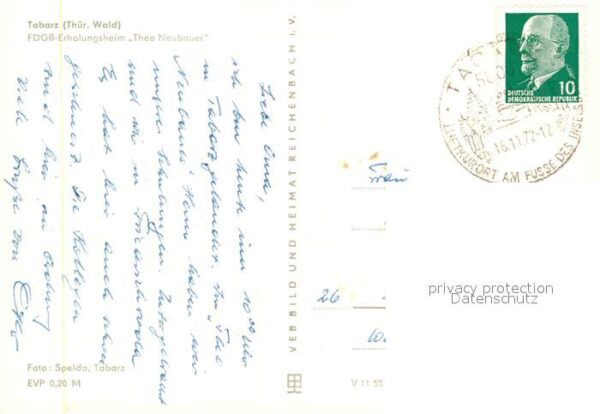 Tabarz (Thür. Wald)
FDGB-Erholungsheim „Theo Neubauer"
Liebe Oma,
ich bin heute um 10⁰⁰ Uhr
in Tabarz gelandet. Im „Theo
Neubauer" Heim haben wir
unsere Schulungen. Untergebracht
sind wir in
Es hat hier auch schon
geschneit. Die Kollegen
sind hier in Ordnung
Viele Grüße von
Foto: Spelda, Tabarz
EVP 0,20 M
VEB BILD UND HEIMAT REICHENBACH I. V.
V 11 50
Frau
26
DEUTSCHE
DEMOKRATISCHE REPUBLIK
10
16.11.72-12
LUFTKURORT AM FUSSE DES INSELS
privacy protection
Datenschutz